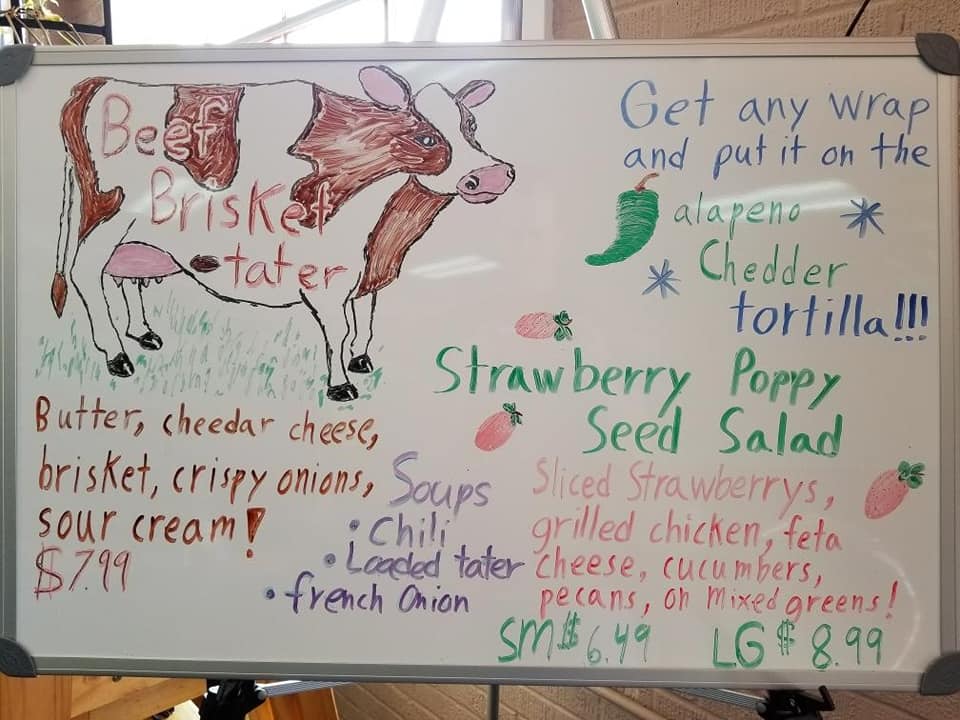 Beef
Brisket
tater
Butter, cheedar cheese,
brisket, crispy onions,
sour cream!
$7.99
Get any wrap
and put it on the
alapeno
Chedder
tortilla!!!
Strawberry Poppy
Seed Salad
Sliced Strawberrys,
grilled chicken, feta
cheese, cucumbers,
pecans, on mixed greens!
SM $6.49 LG $8.99
Soups
• Chili
• Loaded tater
• french Onion